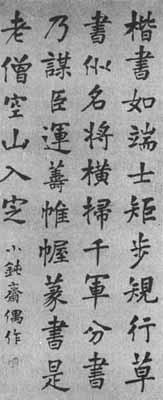 楷書如端士矩步規行草
書似名將橫掃千軍分書
乃謀臣運籌帷幄篆書是
老僧空山入定
小鈍齋偶作